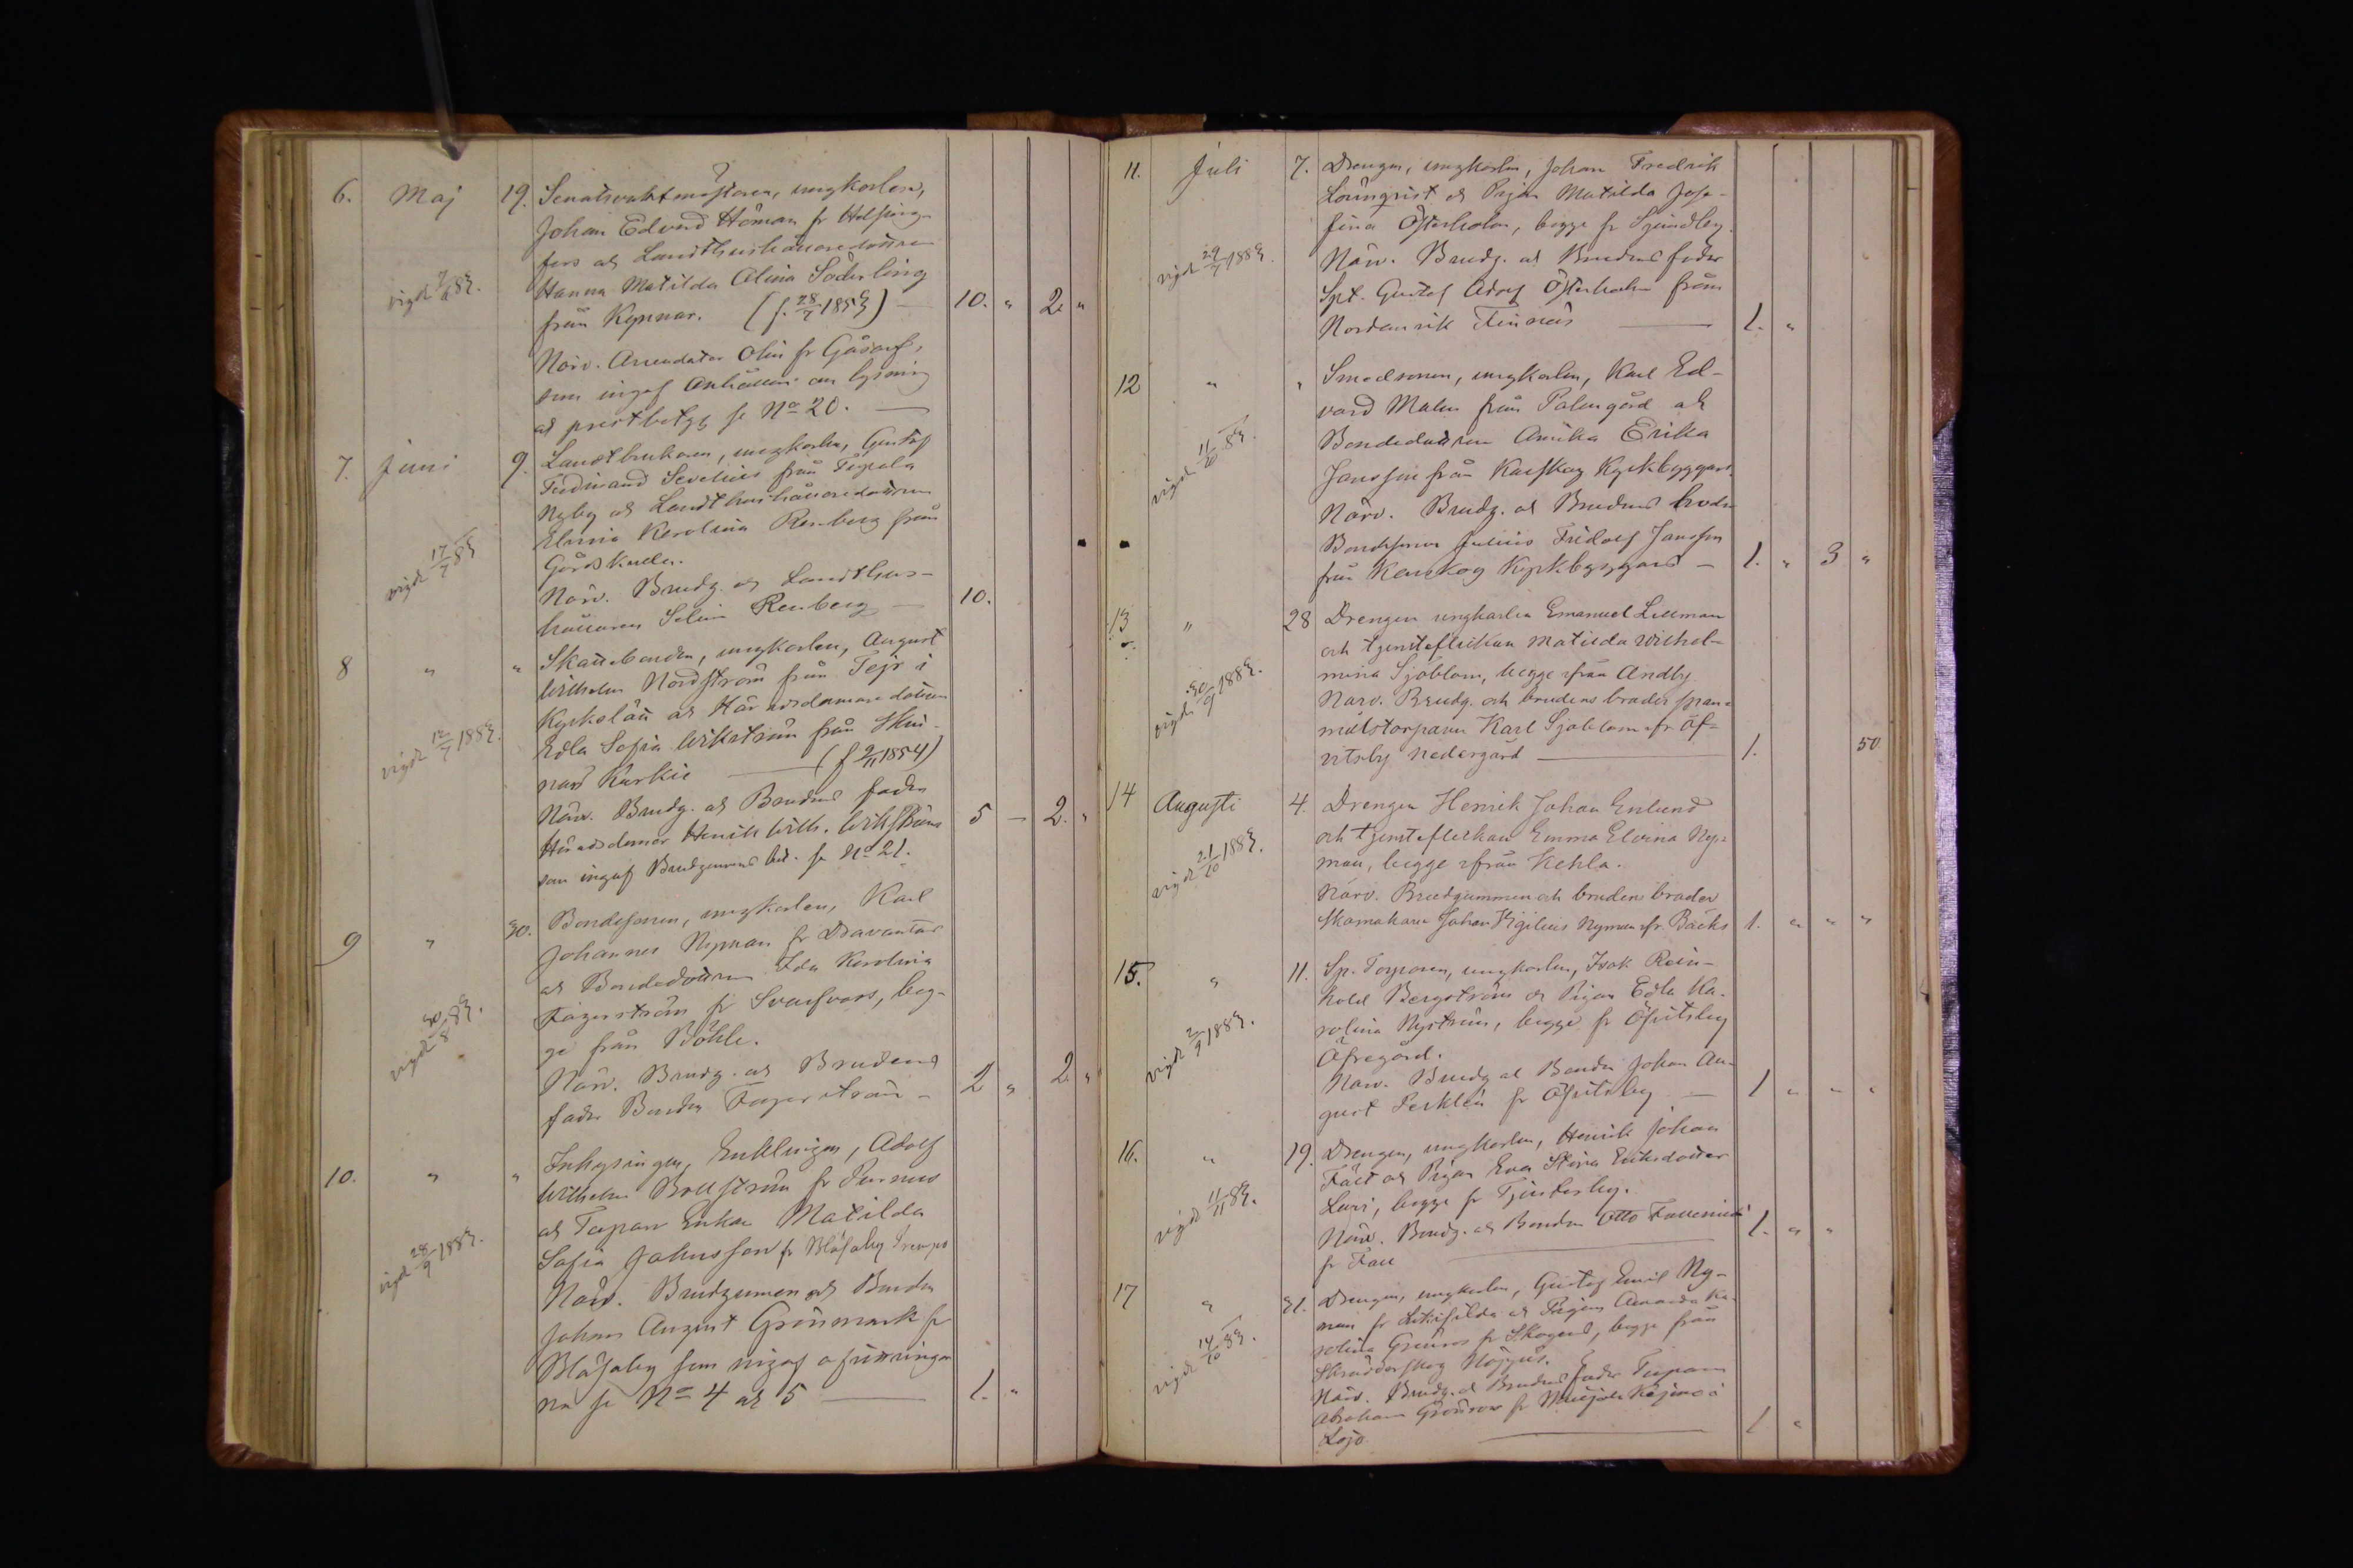 6. Maj 19. Senatsvaktmästaren, ungkarlen,
Johan Edvard Höman fr Helsing-
fors och Landthushållaredottren
vigd 83. Hanna Matilda Alina Söderling
från Kypnar. (f. 28/7 1853) — 10. " 2. "
Närv. Arrendator Olin fr Gåsarf,
som ingaf Anhållan om lysning
och prestbetyg se No 20. —
7. Juni 9. Landtbrukaren, ungkarlen, Gustaf
Ferdinand Sevelius från
Nyby och Landthushållaredottren
vigd 17/7 83 Karolina Renberg från
Gårdskulla.
Närv. Brudg. och Landthus-
hållaren Selim Renberg — 10.
8 " " Skattebonden, ungkarlen, August
Wilhelm Nordström från i
Kyrkslätt och Häradsdomaredottren
vigd 12/7 1883. Edla Sofia Wikström från
Kurkie — (f 9/11 1854)
Närv. Brudg. och Brudens fader
Häradsdomar Henrik Wilh. Wikström 5 — 2. "
som ingaf Brudgummens bet. se No 21.
9 " 30. Bondesonen, ungkarlen, Karl
Johannes Nyman fr
och Bondedottren Ida Karolina
vigd 30/8 83. Fagerström fr Svarfvars, beg-
ge från Böhle.
Närv. Brudg. och Brudens
fader Bonden Fagerström — 2 " 2 "
10. " " Inhysingen, Enklingen, Adolf
Wilhelm fr
och Enkan Matilda
vigd 28/9 1883. Sofia Johnsson fr Blåfalby
Närv. Brudgumen och Bonden
Johan August Grönmark fr
Blåfalby som ingaf
se No 4 och 5 — 1. "
11. Juli 7. Drengen, ungkarlen, Johan Fredrik
Lönnqvist och Pigan Matilda Jose-
fina Österholm, begge fr Sjundby.
vigd 29/7 1883. Närv. Brudg. och Brudens fader
Spt. Gustaf Adolf Österholm från
Nordanvik Finnäs — 1. "
12 " " Smedsonen, ungkarlen, Karl Ed-
vard Malm från Palmgård och
Bondedottren Amika Erika
vigd 11/10 83. Jansson från Karskog Kyrkbyggars
Närv. Brudg. och Brudens broder
Bondesonen Julius Fridolf Jansson
från Karskog Kyrkbyggars — 1. " 3 "
13 " 28 Drengen ungkarlen Emanuel Lillman
och tjensteflickan Matilda Wilhel-
mina Sjöblom, begge från Andby.
vigd 30/9 1883. Närv. Brudg. och brudens broder span-
målstorparen Karl Sjöblom fr. Öf-
vitsby Nedergård — 1. 50
14 Augusti 4. Drengen Henrik Johan Enlund
och tjensteflickan Emma Elvina Ny-
vigd 21/10 1883. man, begge från Kehla.
Närv. Brudgummen och brudens broder
Skomakaren Johan Vigilius Nyman fr. Bäcks 1. " " "
15. " 11. Sp. Torparen, ungkarlen, Isak Rein-
hold Bergström och Pigan Edla Ka-
rolina Nyström, begge fr Öfvitsby
vigd 2/9 1883. Öfregård.
Närv. Brudg och Bonden Johan Au-
gust Perklén fr Öfvitsby — 1 " " "
16. " 19. Drengen, ungkarlen, Henrik Johan
Fält och Pigan Eva Stina Eriksdotter
Lari, begge fr Tjusterby.
vigd 11/11 83. Närv. Brudg. och Bonden Otto 1. " "
fr Fall —
17 " 31. Drengen, ungkarlen, Gustaf Emil Ny-
man fr och Pigan Amanda Ka-
rolina Grönros fr Skogens, begge från
vigd 14/10 83. Skräddarskog
Närv. Brudg. och Brudens fader Torparen
Abraham Grönros fr i
Lojo. — 1 "